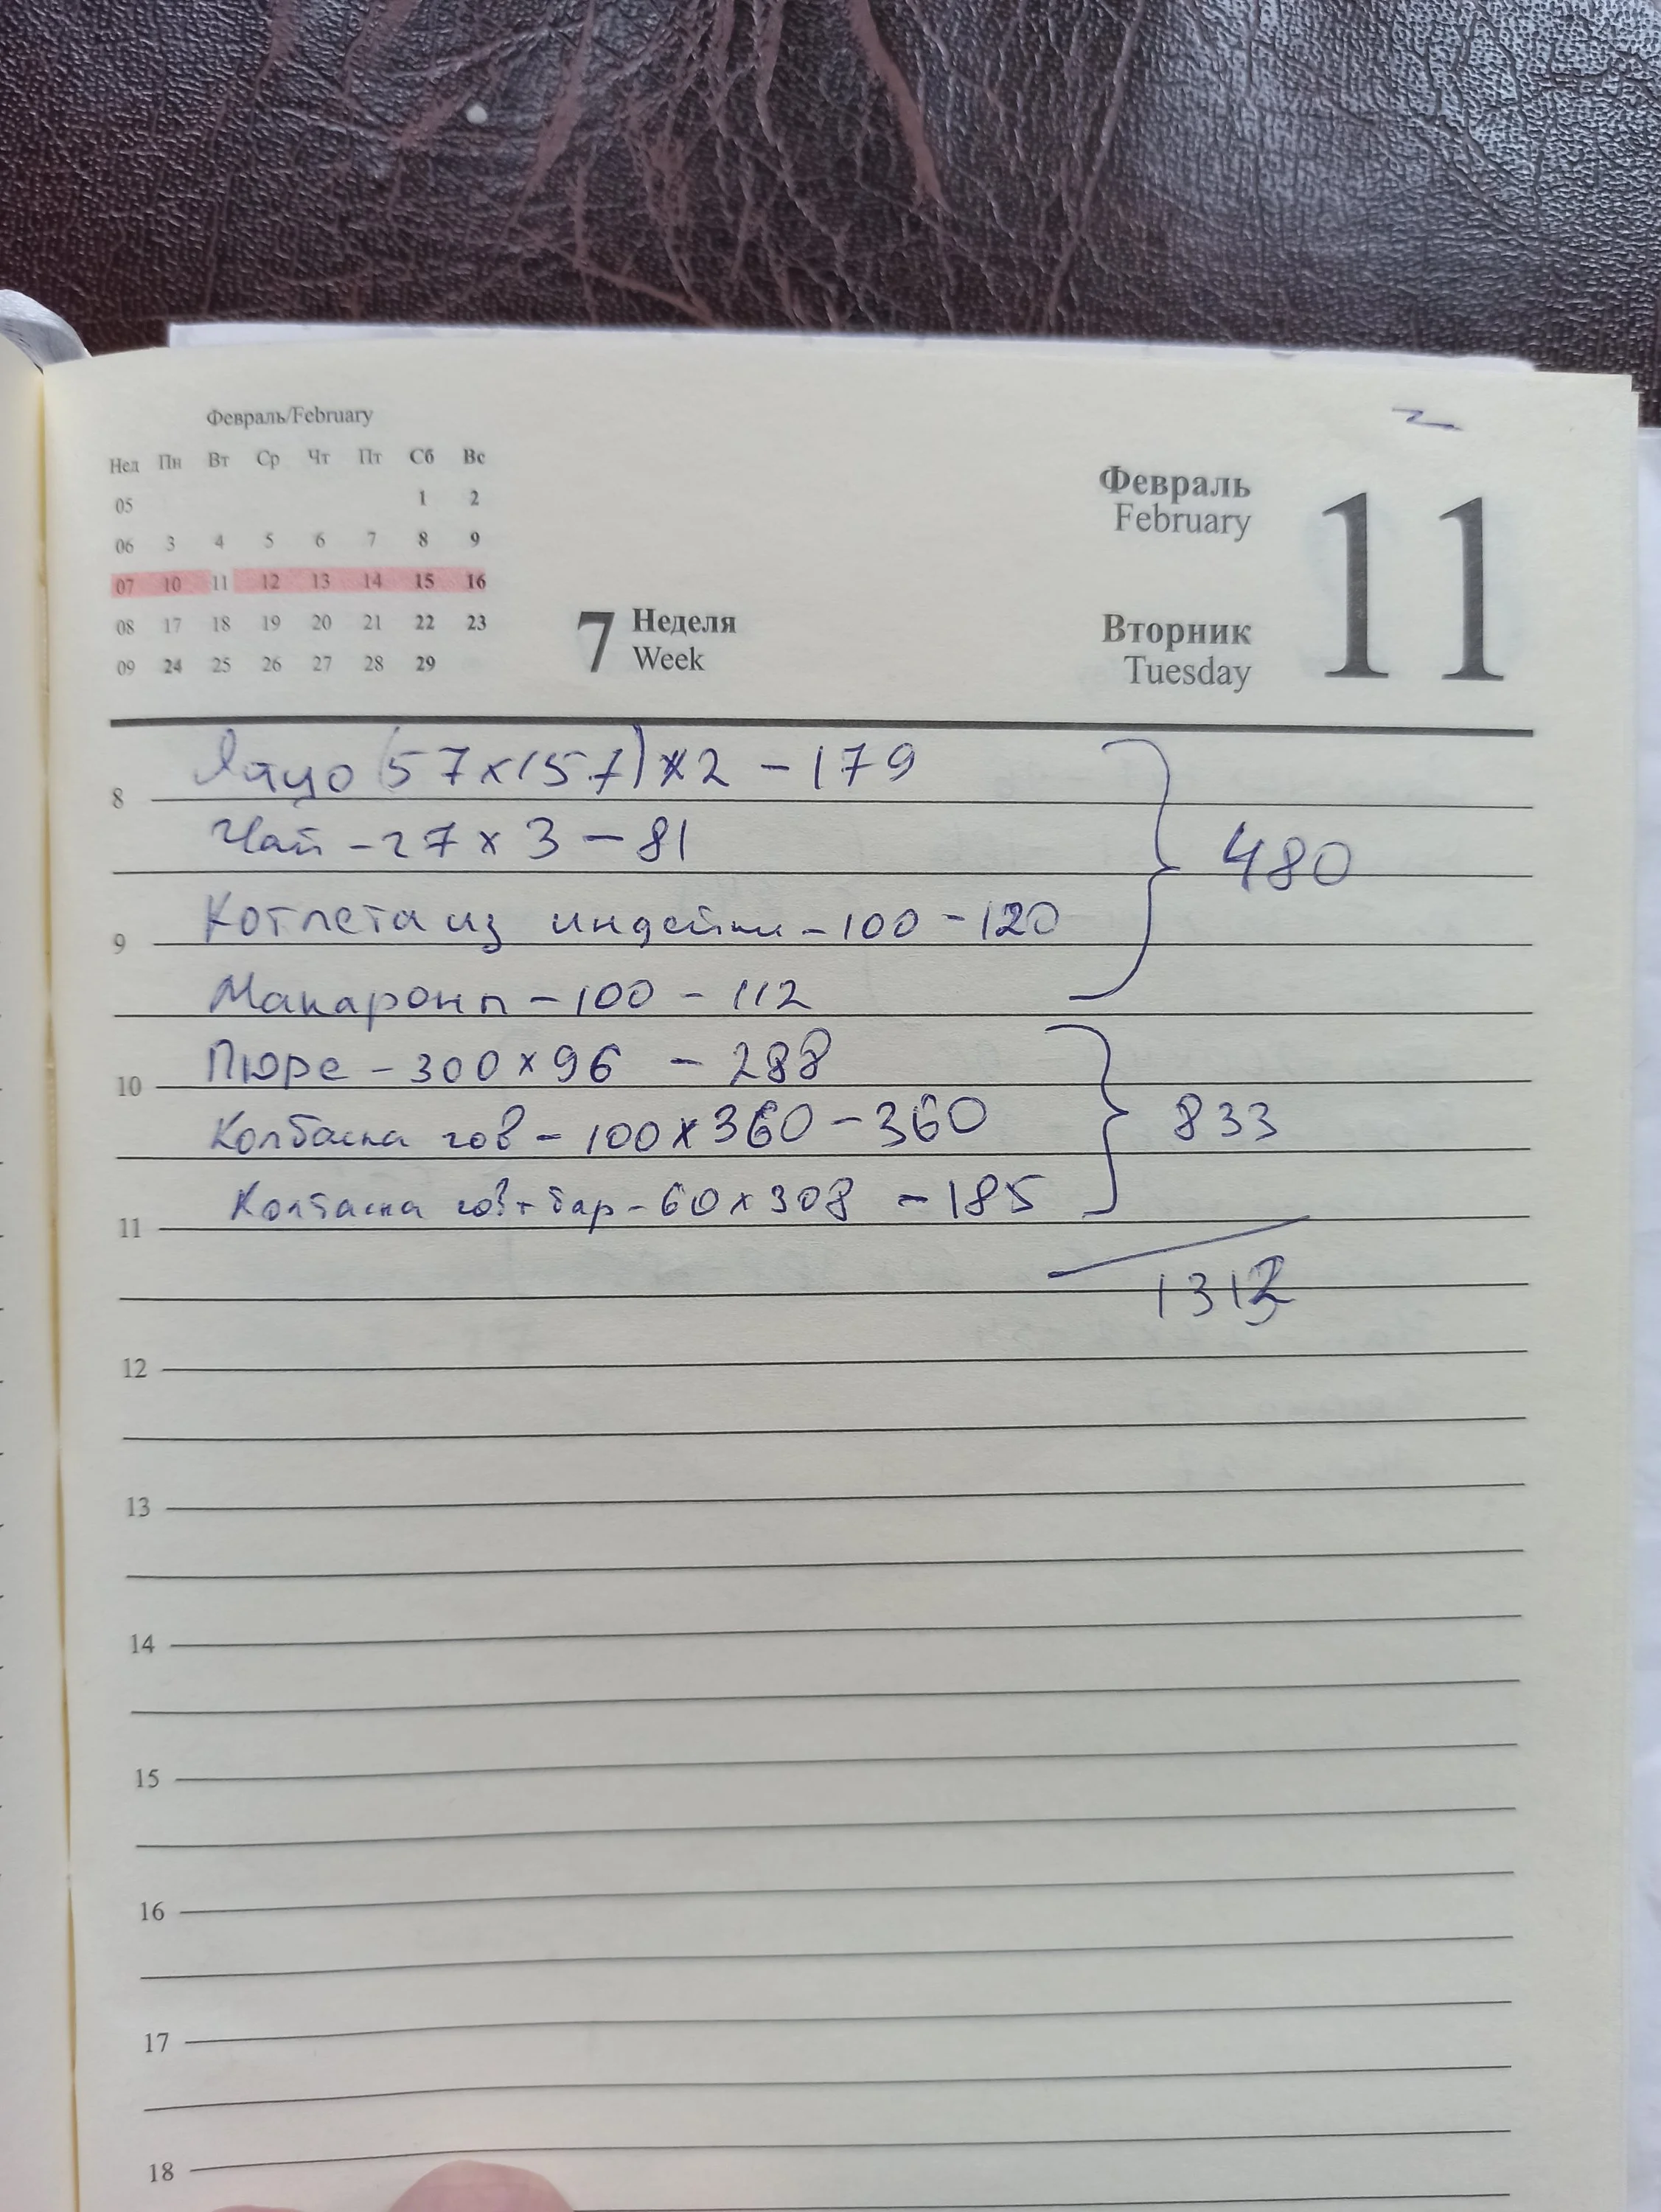 Февраль/February
Нед Пн Вт Ср Чт Пт Сб Вс
05 1 2
06 3 4 5 6 7 8 9
07 10 11 12 13 14 15 16
08 17 18 19 20 21 22 23
09 24 25 26 27 28 29
7 Неделя
Week
Февраль
February
Вторник
Tuesday
11
8 Яйцо (57x157)x2 - 179
Чай - 27 x 3 - 81
480
9 Котлета из индейки - 100 - 120
Макароны - 100 - 112
10 Пюре - 300 x 96 - 288
Колбаска гов - 100 x 360 - 360
833
11 Колбаска гов + бар - 60 x 308 - 185
1313
12
13
14
15
16
17
18